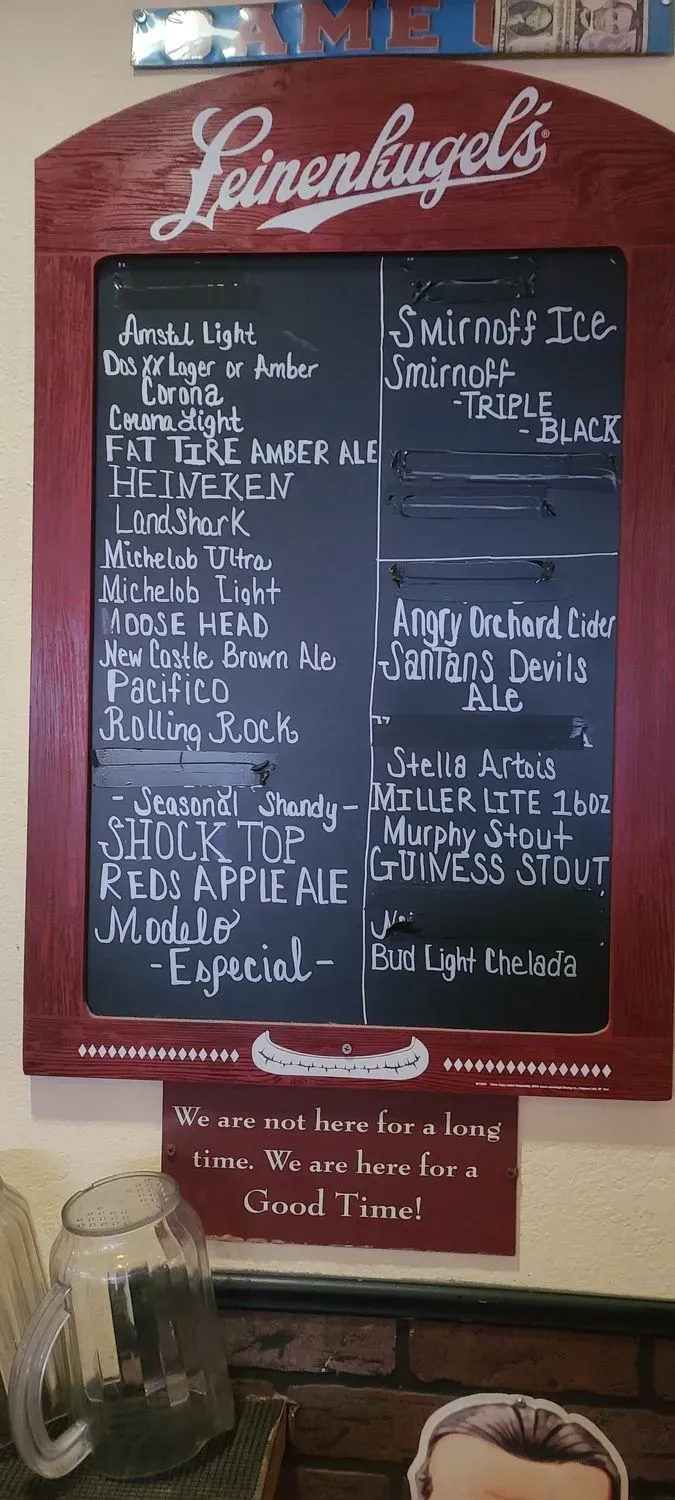 GAME
Leinenkugel's
Amstel Light
Dos XX Lager or Amber
Corona
Corona Light
FAT TIRE AMBER ALE
HEINEKEN
LandSharK
Michelob Ultra
Michelob Light
MOOSE HEAD
New Castle Brown Ale
Pacifico
Rolling Rock
- Seasonal Shandy -
SHOCK TOP
REDS APPLE ALE
Modelo
- Especial -
Smirnoff Ice
Smirnoff
- TRIPLE
- BLACK
Angry Orchard Cider
SanTans Devils
Ale
Stella Artois
MILLER LITE 16oz
Murphy Stout
GUINESS STOUT
Bud Light Chelada
We are not here for a long
time. We are here for a
Good Time!